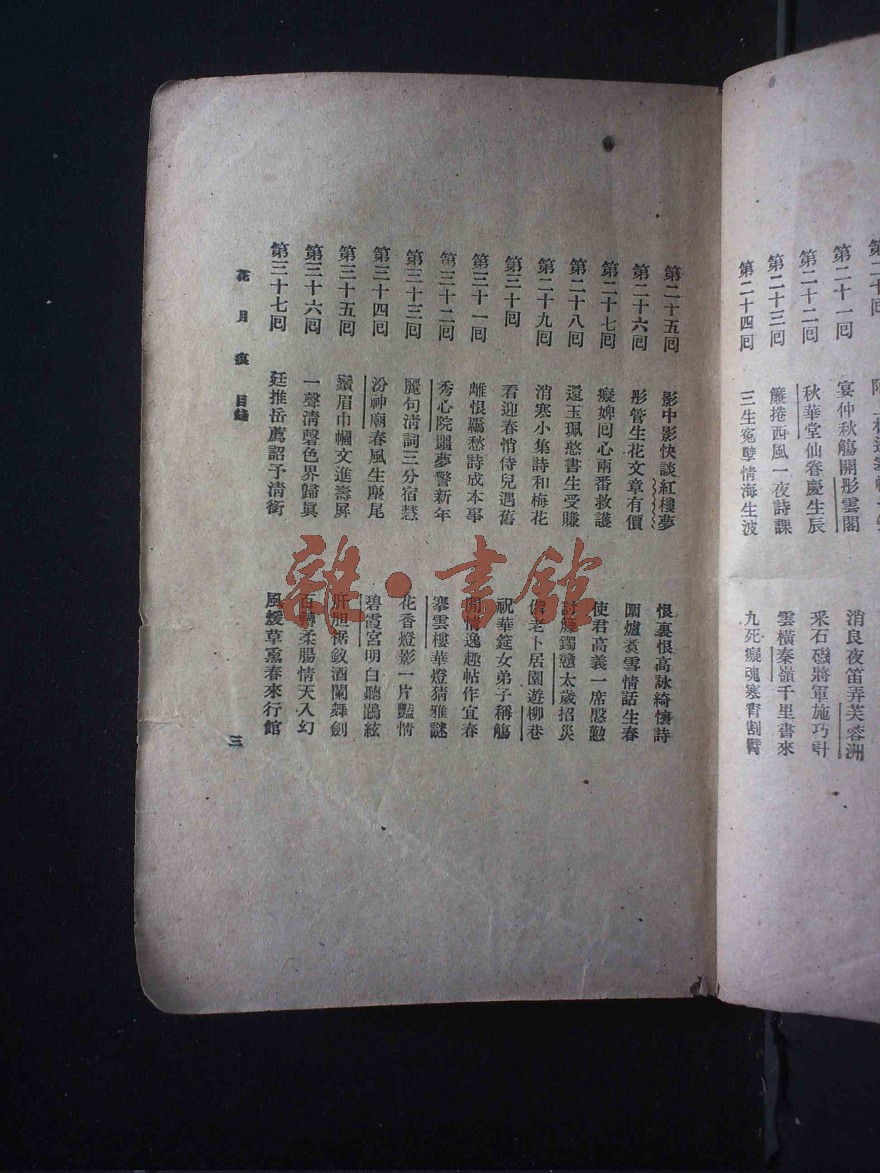 第二十一回　宴仲秋觴關彤雲閣　消良夜笛弄芙蓉洲
第二十二回　秋華堂仙眷慶生辰　采石磯將軍施巧計
第二十三回　簾捲西風一夜詩課　雲橫秦嶺千里書來
第二十四回　三生冤孽情海生波　九死癡魂寒宵割臂
第二十五回　影中影快談紅樓夢　恨裏恨高詠綺懷詩
第二十六回　彤管生花文章有價　圍爐煑雪情話生春
第二十七回　癡婢回心兩番救護　使君高義一席慇懃
第二十八回　還玉珮憨書生受賺　討藤鐲戇太歲招災
第二十九回　消寒小集詩和梅花　偕老卜居園遊柳巷
第三十回　看迎春悄侍兒遇舊　祝華筵女弟子稱觴
第三十一回　離恨羈愁詩成本事　閒情逸趣帖作宜春
第三十二回　秀心院噩夢警新年　搴雲樓華燈猜雅謎
第三十三回　麗句清詞三分宿慧　花香燈影一片豔情
第三十四回　汾神廟春風生麈尾　碧霞宮明白聽鵾絃
第三十五回　鬚眉巾幗文進壽屏　肝胆裙釵酒闌舞劍
第三十六回　一聲清磬色界歸眞　百轉柔腸情天入幻
第三十七回　廷推岳薦詔予清銜　風煖草熏春來行館
花月痕　目錄　三
雜·書館